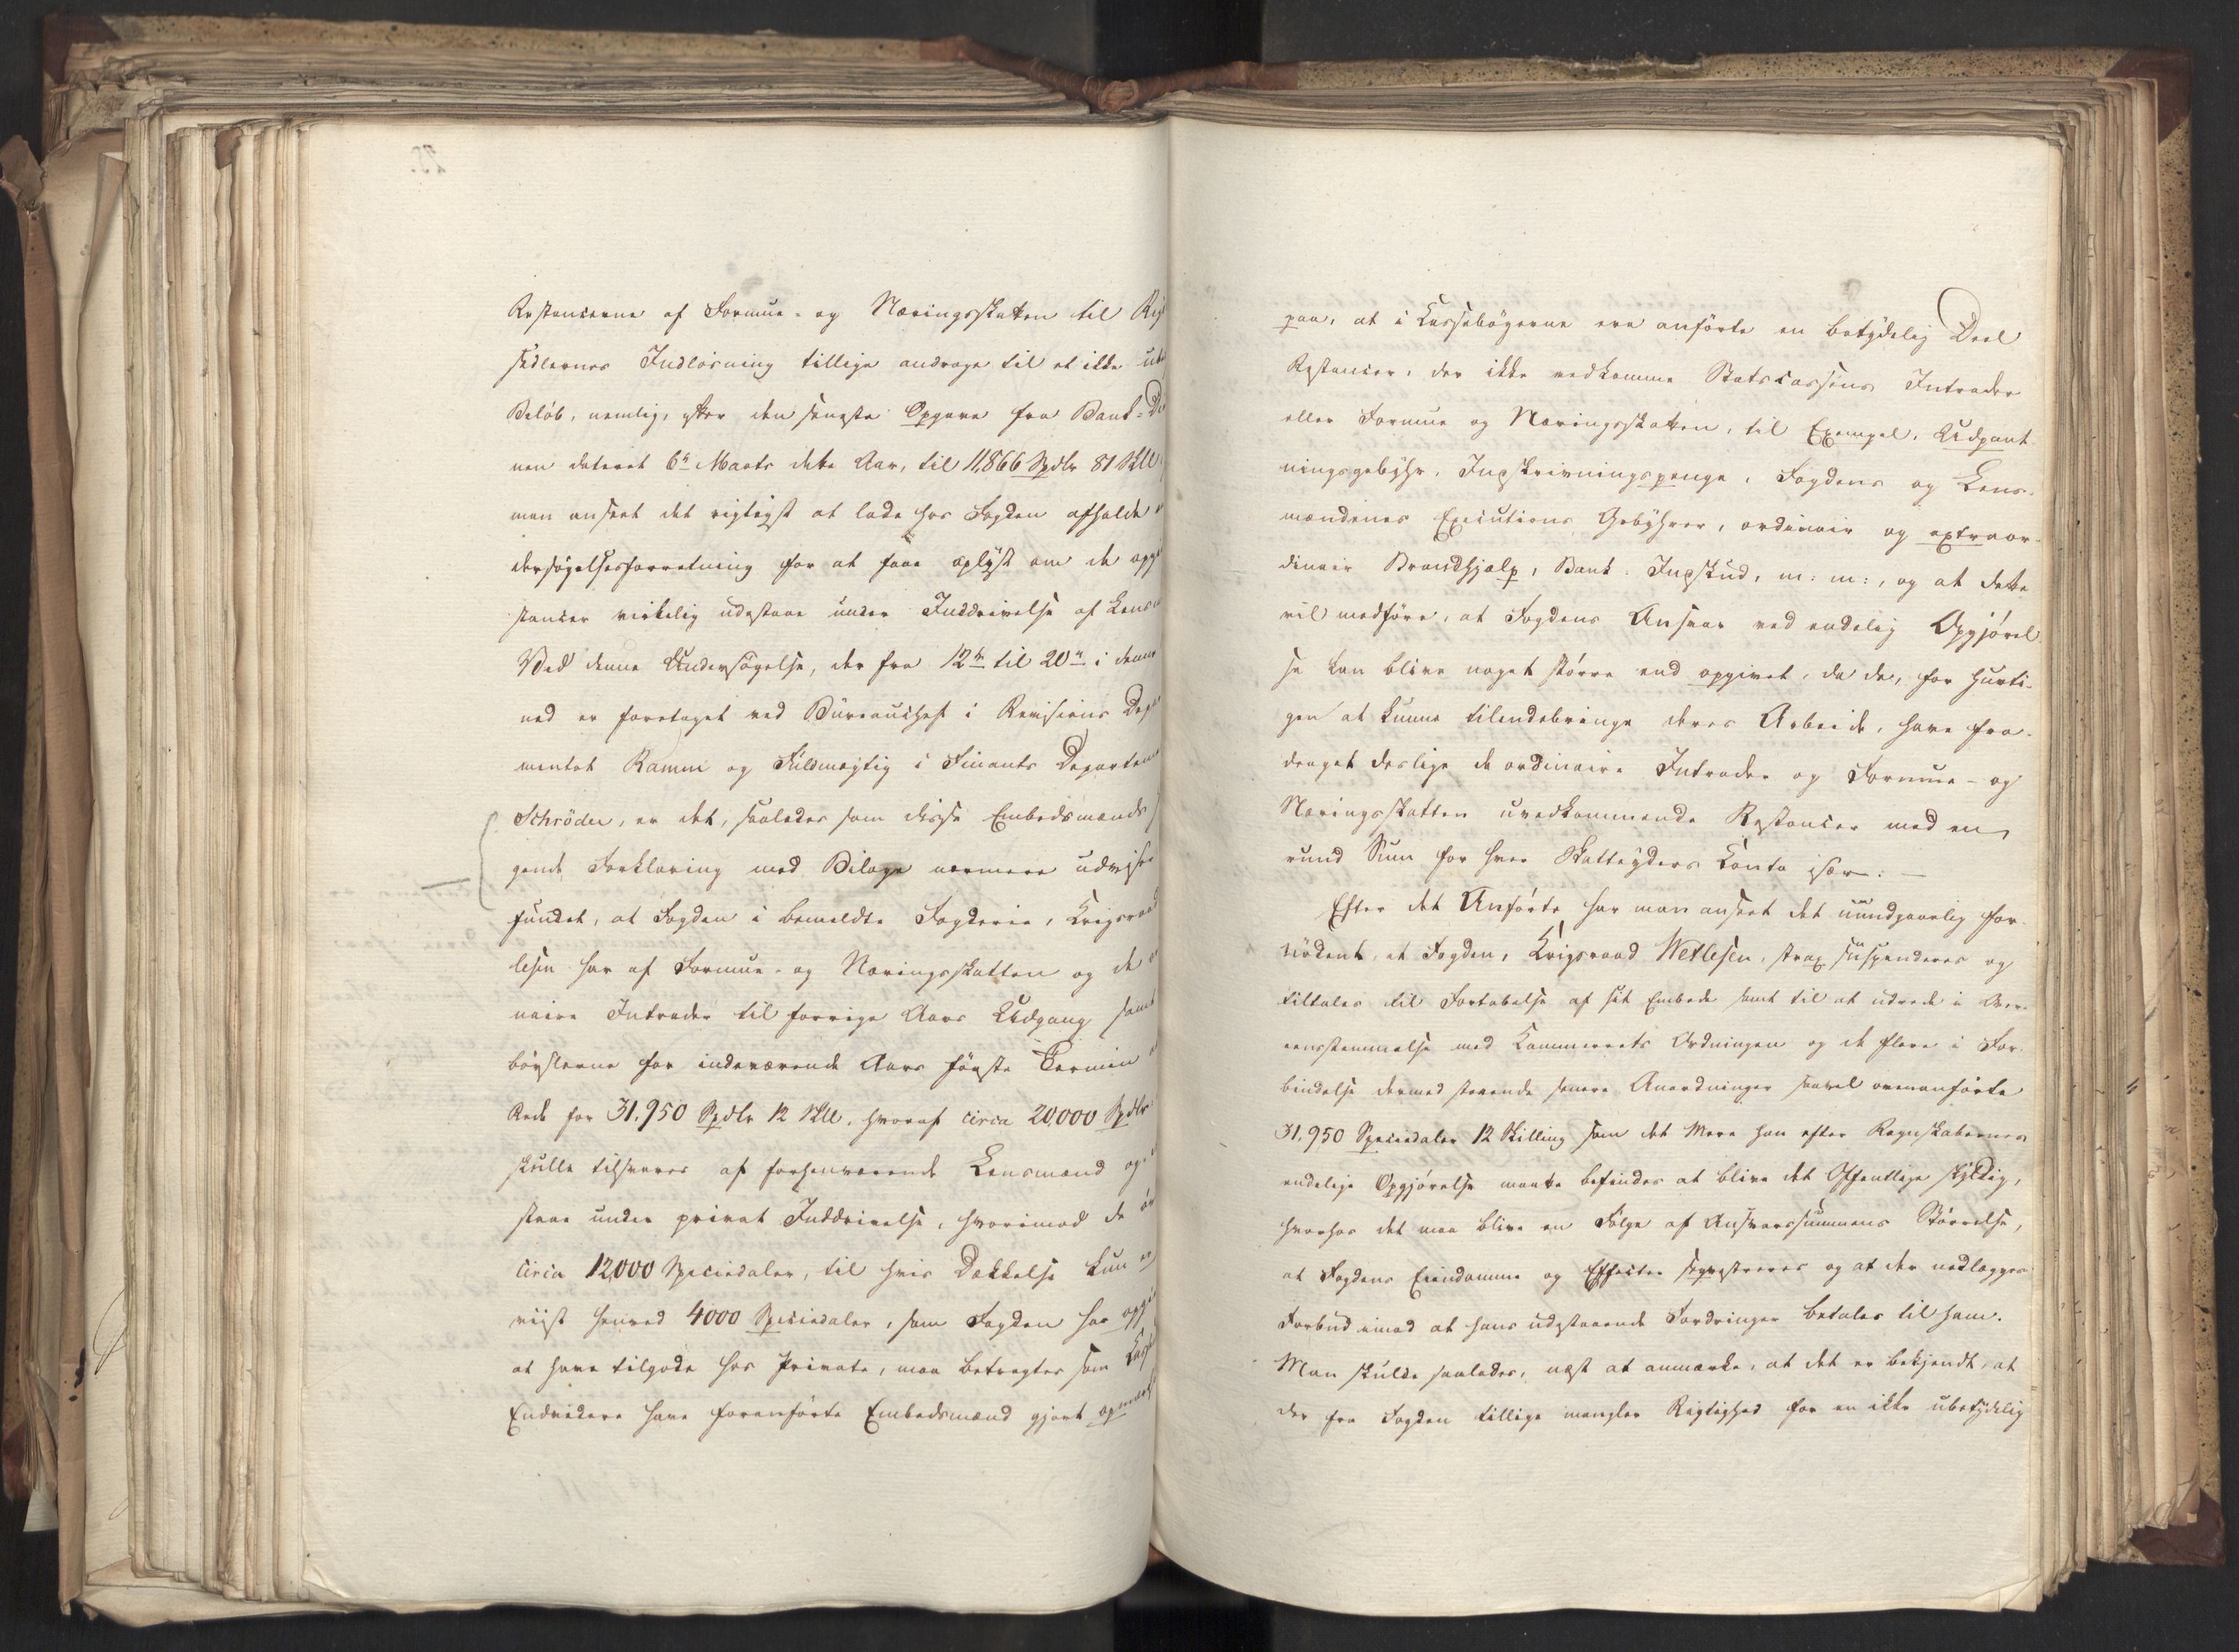 Restancerne af Formue- og Næringsskatten til Rig
sedlernes Indløsning tillige androge til et ikke ube
Beløb, nemlig, efter den seneste Opgave fra Bank-Di
nen dateret 6te Marts dette Aar, til 11,866 Spdlr 81 Skll
man anseet det rigtigst at lade hos Fogden afholde
dersøgelsesforretning for at faae oplyst om de opg
stancer virkelig udestaae under Inddrivelse af Lens
Ved denne Undersøgelse, der fra 12te til 20de i denne
ned er foretaget ved Büreauchef i Revisions Depa
mentet Ramm og Fuldmægtig i Finants Departem
Schröder, er det, saaledes som disse Embedsmænds
gende Forklaring med Bilage nærmere udviser
fundet, at Fogden i bemeldte Fogderie, Krigsraad
lesen har af Formue- og Næringsskatten og de
naire Intrader til forrige Aars Udgang samt
bøxlerne for indeværende Aars første Termin
Rede for 31,950 Spdlr 12 Skll, hvoraf circa 20,000 Spdlr
skulle tilsvares af forhenværende Lensmænd og
staae under privat Inddrivelse, hvorimod de øv
circa 12,000 Speciedaler, til hvis Dækkelse kun er
viist henved 4000 Speciedaler, som Fogden har opgi
at have tilgode hos Private, maa betragtes som Cass
Endvidere have foranførte Embedsmænd gjort opmærks
paa, at i Cassebøgerne ere anførte en betydelig Deel
Restancer, der ikke vedkomme Statscassens Intrader
eller Formue og Næringsskatten, til Exempel, Udpant-
ningsgebyhr, Indskrivningspenge, Fogdens og Lens-
mændenes Executions Gebyhrer, ordinair og extraor-
dinair Brandhjælp, Bank-Indskud, m: m:, og at dette
vil medføre, at Fogdens Ansvar ved endelig Opgjørel-
se kan blive noget større end opgivet, da de, for hurti-
gen at kunne tilendebringe deres Arbeide, have fra-
draget deslige de ordinaire Intrader og Formue- og
Næringsskatten uvedkommende Restancer med en
rund Sum for hver Skatteyders Conto især. —
Efter det Anførte har man anseet det uundgaaelig for-
nødent, at Fogden, Krigsraad Wetlesen, strax suspenderes og
tiltales til Fortabelse af sit Embede samt til at udrede i Over-
eensstemmelse med Cammerrets Ordningen og de flere i For-
bindelse dermed staaende senere Anordninger saavel ovenanførte
31,950 Speciedaler 12 Skilling som det Mere han efter Regnskabernes
endelige Opgjørelse maatte befindes at blive det Offentlige skyldig,
hvorhos det maa blive en Følge af Ansvarssummens Størrelse,
at Fogdens Eiendomme og Effecter seqvestreres og at der nedlægges
Forbud imod at hans udestaaende Fordringer betales til ham.
Man skulde saaledes, næst at anmærke, at det er bekjendt, at
der fra Fogden tillige mangler Rigtighed for en ikke ubetydelig